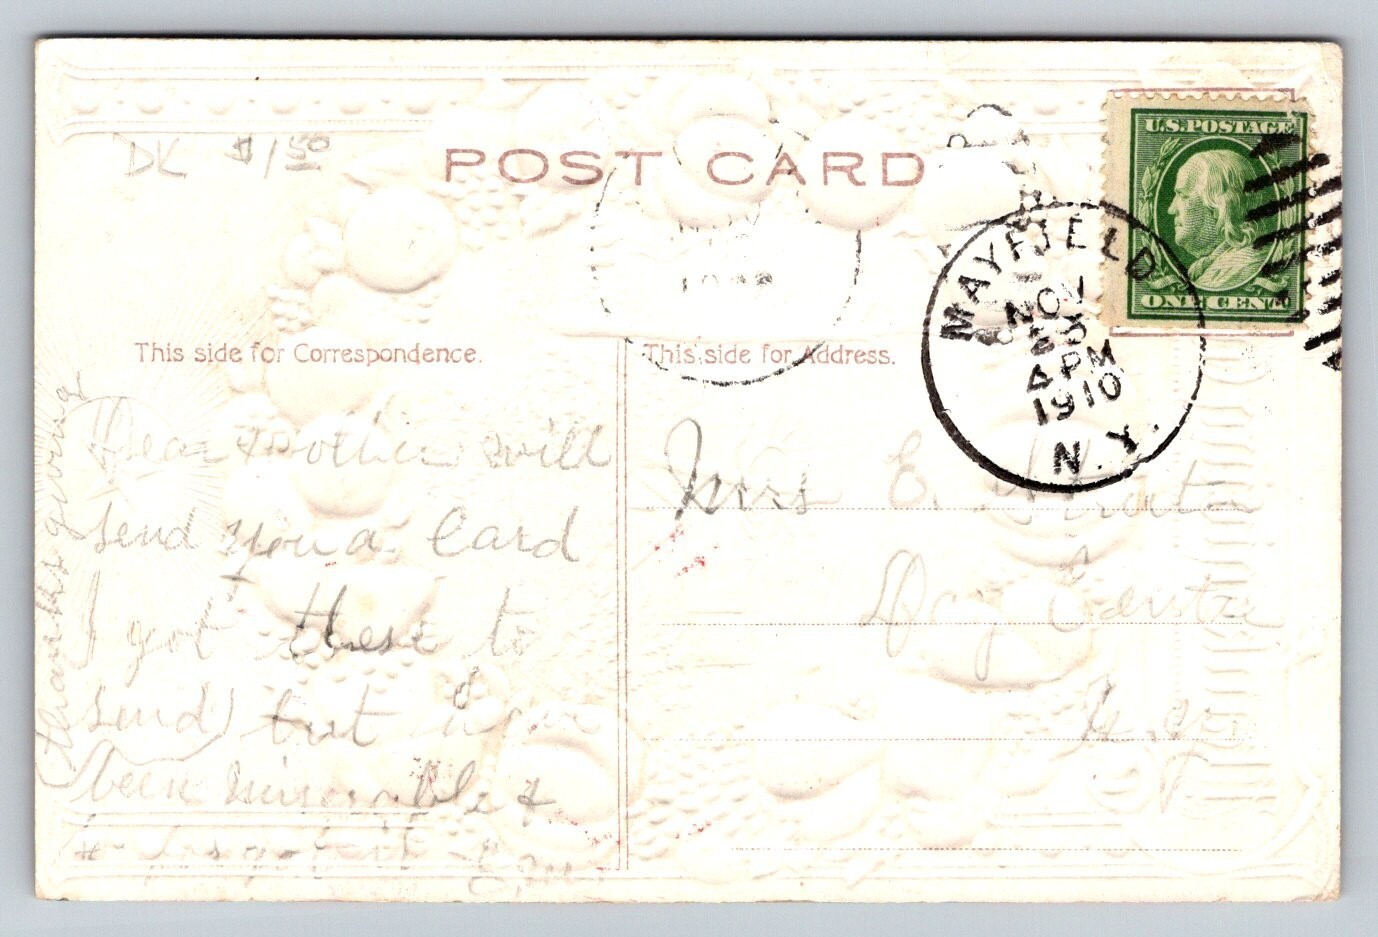 DK $1.50
POST CARD
U.S. POSTAGE
ONE CENT
MAYFIELD
NOV
23
4 PM
1910
N.Y.
This side for Correspondence.
This side for Address.
Dear Mother will
send you a Card
I got these to
send but
been miserable &
thanks giving
Mrs E.
Day Center
N.Y.